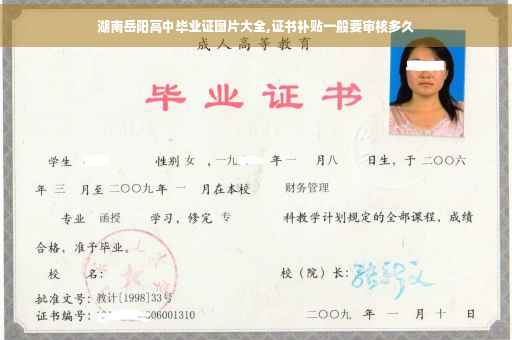 湖南岳阳高中毕业证图片大全,证书补贴一般要审核多久
成人高等教育
毕业证书
学生 性别 女 ,一九 年 一 月 八 日生，于 二〇〇六
年 三 月至 二〇〇九 年 一 月在本校 财务管理
专业 函授 学习，修完 专 科教学计划规定的全部课程，成绩
合格，准予毕业。
校 名： 校（院）长：
批准文号：教计[1998]33号
证书编号： 06001310 二〇〇九 年 一 月 十 日